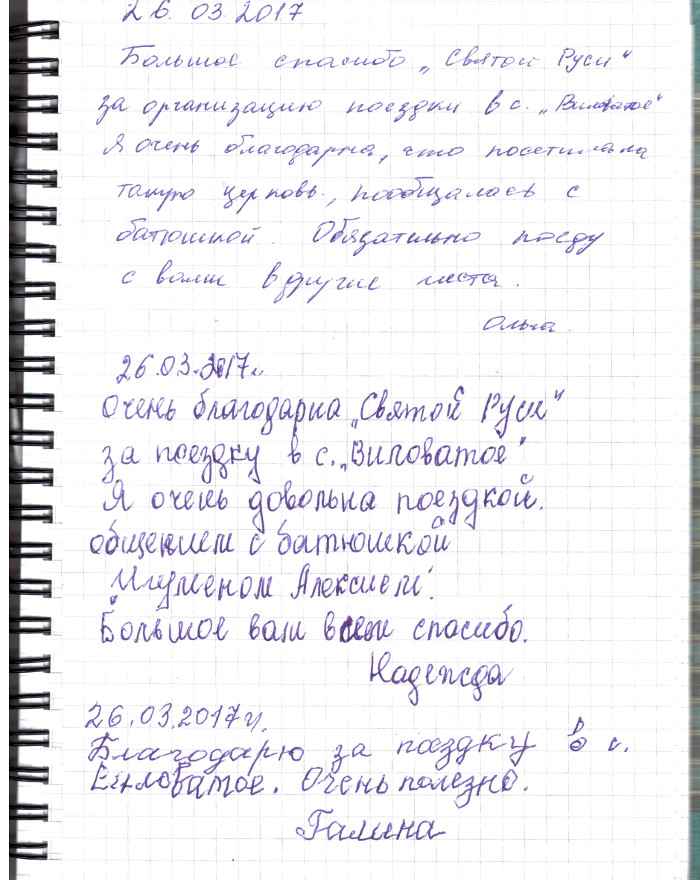 26. 03. 2017
Большое спасибо „Святой Руси"
за организацию поездки в с. „Виловатое"
Я очень благодарна, что посетила на
такую церковь, пообщалась с
батюшкой. Обязательно поеду
с вами в другие места.
Ольга.
26.03.2017г.
Очень благодарна „Святой Руси"
за поездку в с. „Виловатое"
Я очень довольна поездкой.
общением с батюшкой
"Игуменом Алексием".
Большое вам всем спасибо.
Надежда
26.03.2017г.
Благодарю за поездку в с.
Виловатое. Очень полезно.
Галина